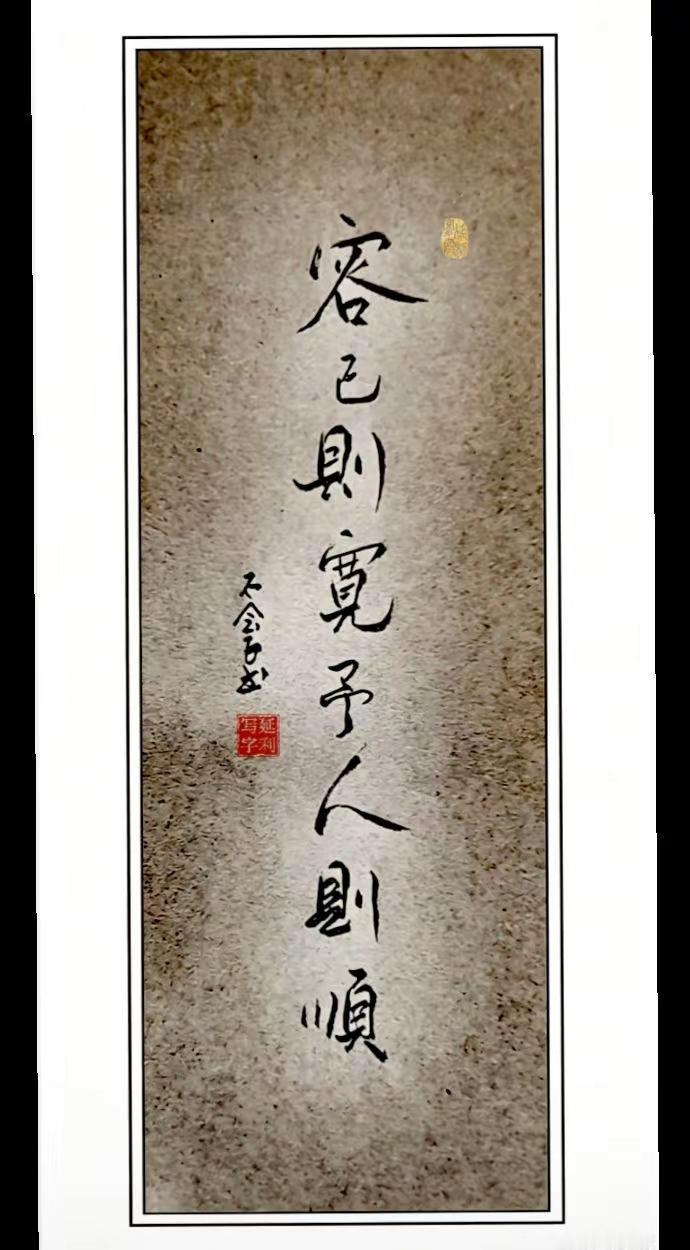 容已則寬予人則順
不会子书
延利
写字